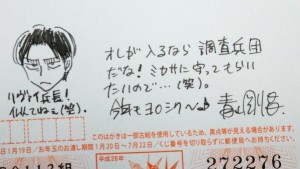 オレが入るなら 調査兵団
だな! ミカサに守ってもらい
たいので…(笑)。
今年もヨロシク〜♪ 青山剛昌
リヴァイ兵長!
似てねェ(笑)。
このはがきは一部古紙を使用しているため、黒点等が見える場合があります。
1月19日/お年玉のお渡し期間 1月20日〜7月22日/くじ番号を切り取らずに郵便局へお持ちください。
平成26年
272276